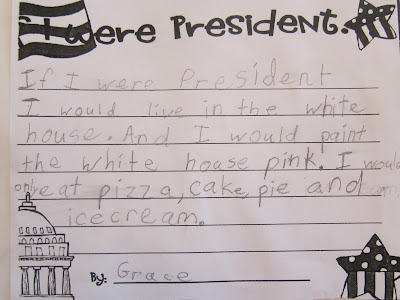 If I were President.
If I were President
I would live in the white
house. And I would paint
the white house pink. I would
only eat pizza, cake, pie and
icecream.
By: Grace